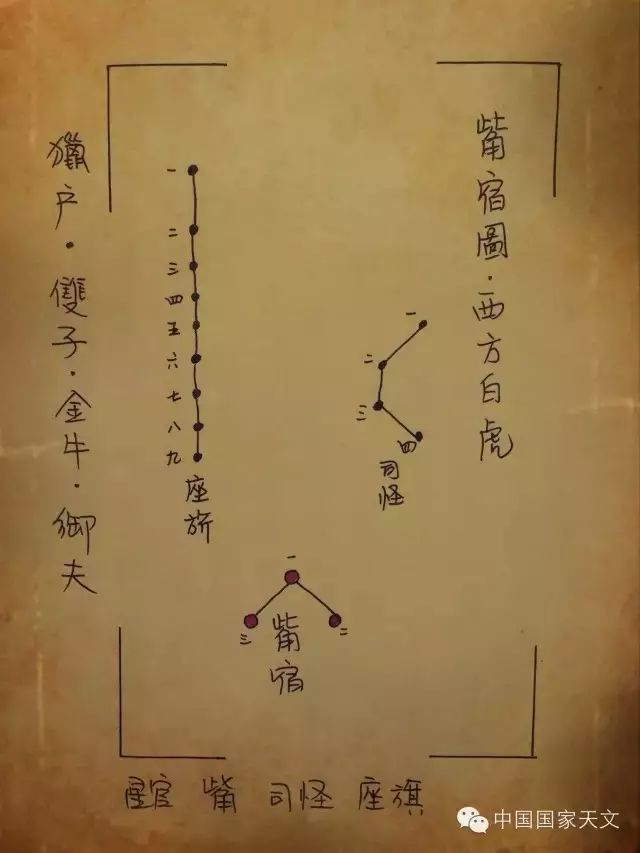 觜宿圖·西方白虎
一
二
三
四
司怪
一
二
三
四
五
六
七
八
九
座旂
一
二
三
觜宿
獵户·雙子·金牛·御夫
星官 觜 司怪 座旗
中国国家天文